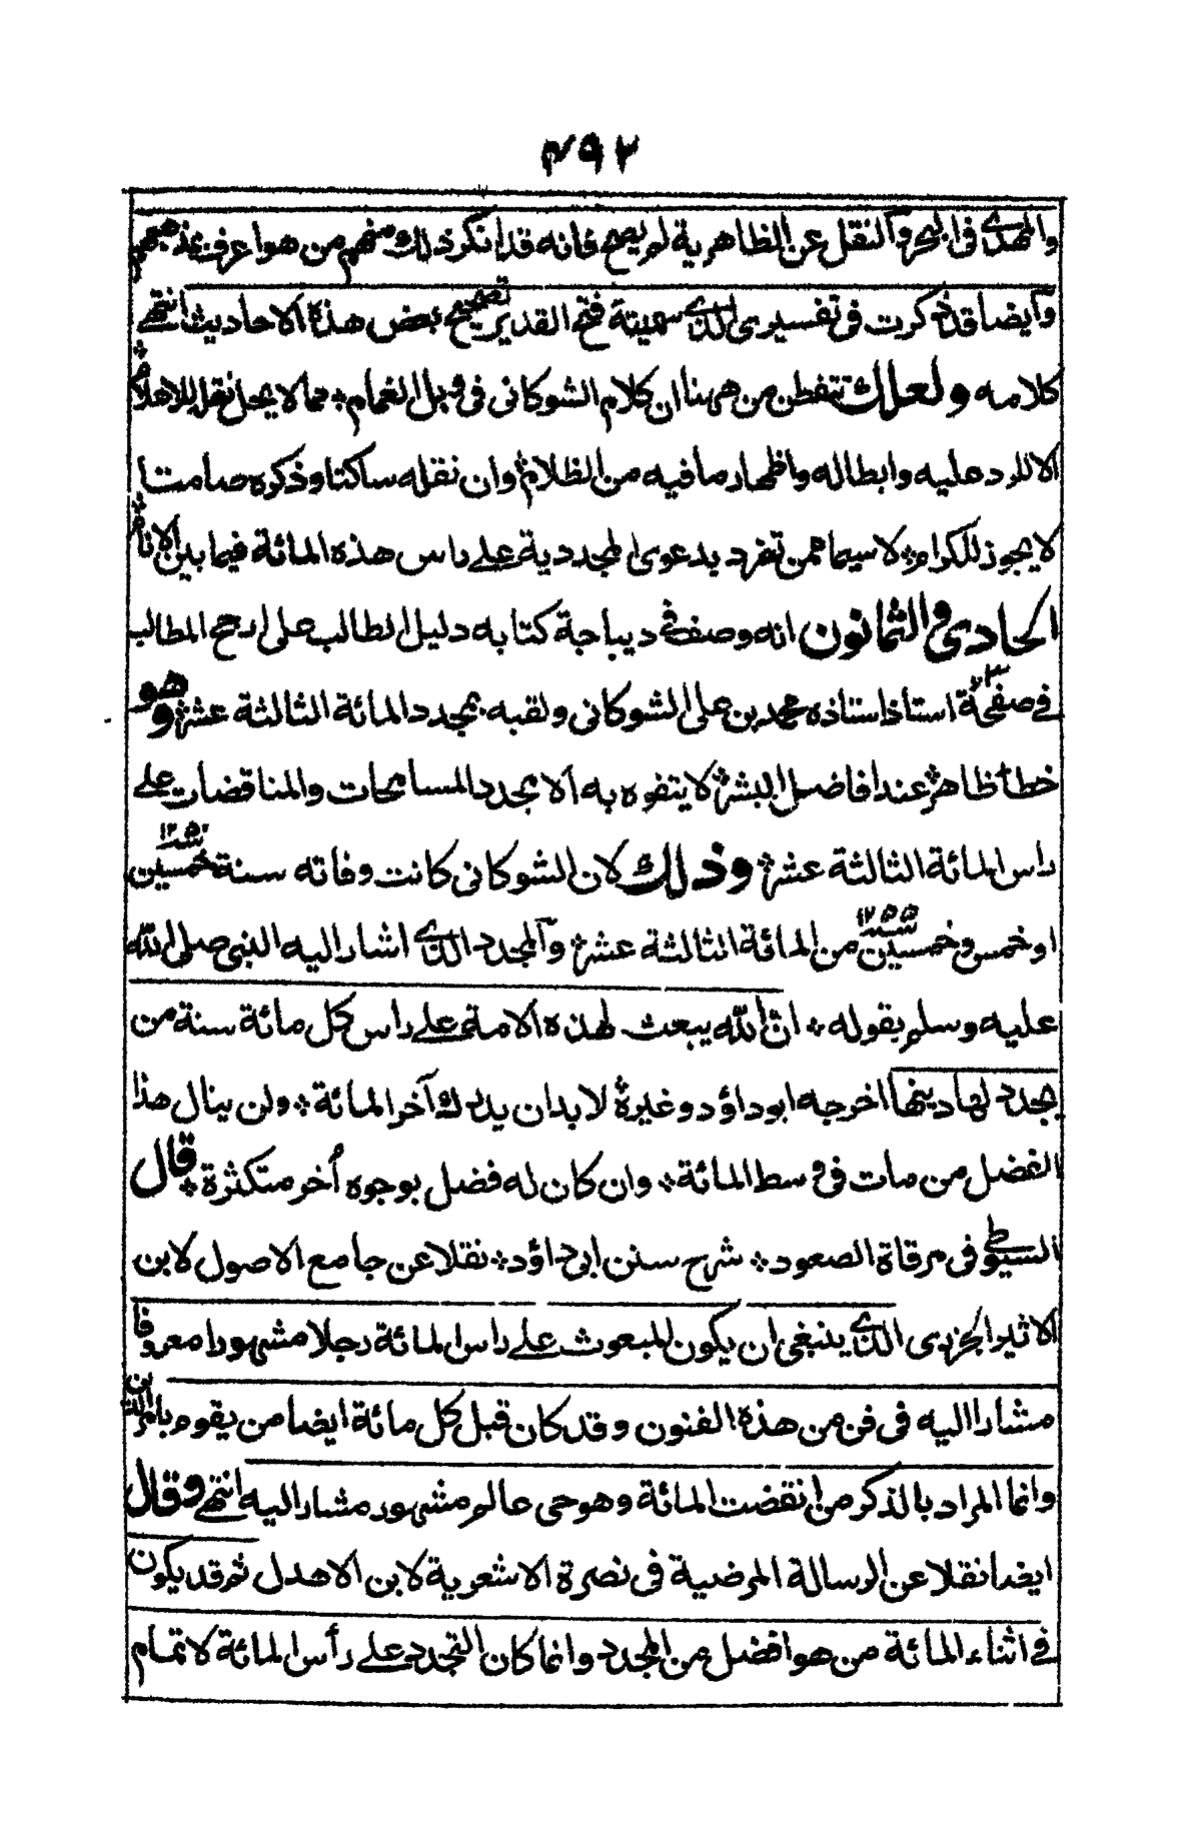 ٢٩٢
والمهدي في البحر والنقل عن الظاهرية لم يصح فانه قد انكر ذلك منهم من هو اعرف بمذهبهم
وايضا قد ذكرت في تفسيري الذي سميته فتح القدير تصحيح بعض هذه الاحاديث انتهى
كلامه ولعلك تتفطن من ههنا ان كلام الشوكاني في وبل الغمام * مما لا يحل نقله للاعلام *
الا للرد عليه وابطاله واظهار ما فيه من الظلام * وان نقله ساكتا وذكره صامتا
لا يجوز للكرام * لا سيما ممن تفرد بدعوى المجددية على راس هذه المائة فيما بين الانام *
الحادي والثمانون انه وصف في ديباجة كتابه دليل الطالب على ارجح المطالب
في صفحة ٣ استاذ استاذه محمد بن علي الشوكاني ولقبه بمجدد المائة الثالثة عشر * وهو
خطأ ظاهر * عند افاضل البشر * لا يتفوه به الا مجدد المسامحات والمناقضات على
راس المائة الثالثة عشر * وذلك لان الشوكاني كانت وفاته سنة خمسين ١٢٥٠
او خمس وخمسين ١٢٥٥ من المائة الثالثة عشر * والمجدد الذي اشار اليه النبي صلى الله
عليه وسلم بقوله * ان الله يبعث لهذه الامة على راس كل مائة سنة من
يجدد لها دينها اخرجه ابو داؤد وغيره * لا بد ان يدرك آخر المائة * ولن ينال هذا
الفضل من مات في وسط المائة * وان كان له فضل بوجوه أخر متكثرة * قال
السيوطي في مرقاة الصعود * شرح سنن ابي داؤد * نقلا عن جامع الاصول لابن
الاثير الجزري الذي ينبغي ان يكون المبعوث على راس المائة رجلا مشهورا معروفا
مشارا اليه في فن من هذه الفنون وقد كان قبل كل مائة ايضا من يقوم بامر الدين
وانما المراد بالذكر من انقضت المائة وهو حي عالم مشهور مشار اليه انتهى وقال
ايضا نقلا عن الرسالة المرضية في نصرة الاشعرية لابن الاهدل ثم قد يكون
في اثناء المائة من هو افضل من المجدد وانما كان التجدد على رأس المائة لا تمام